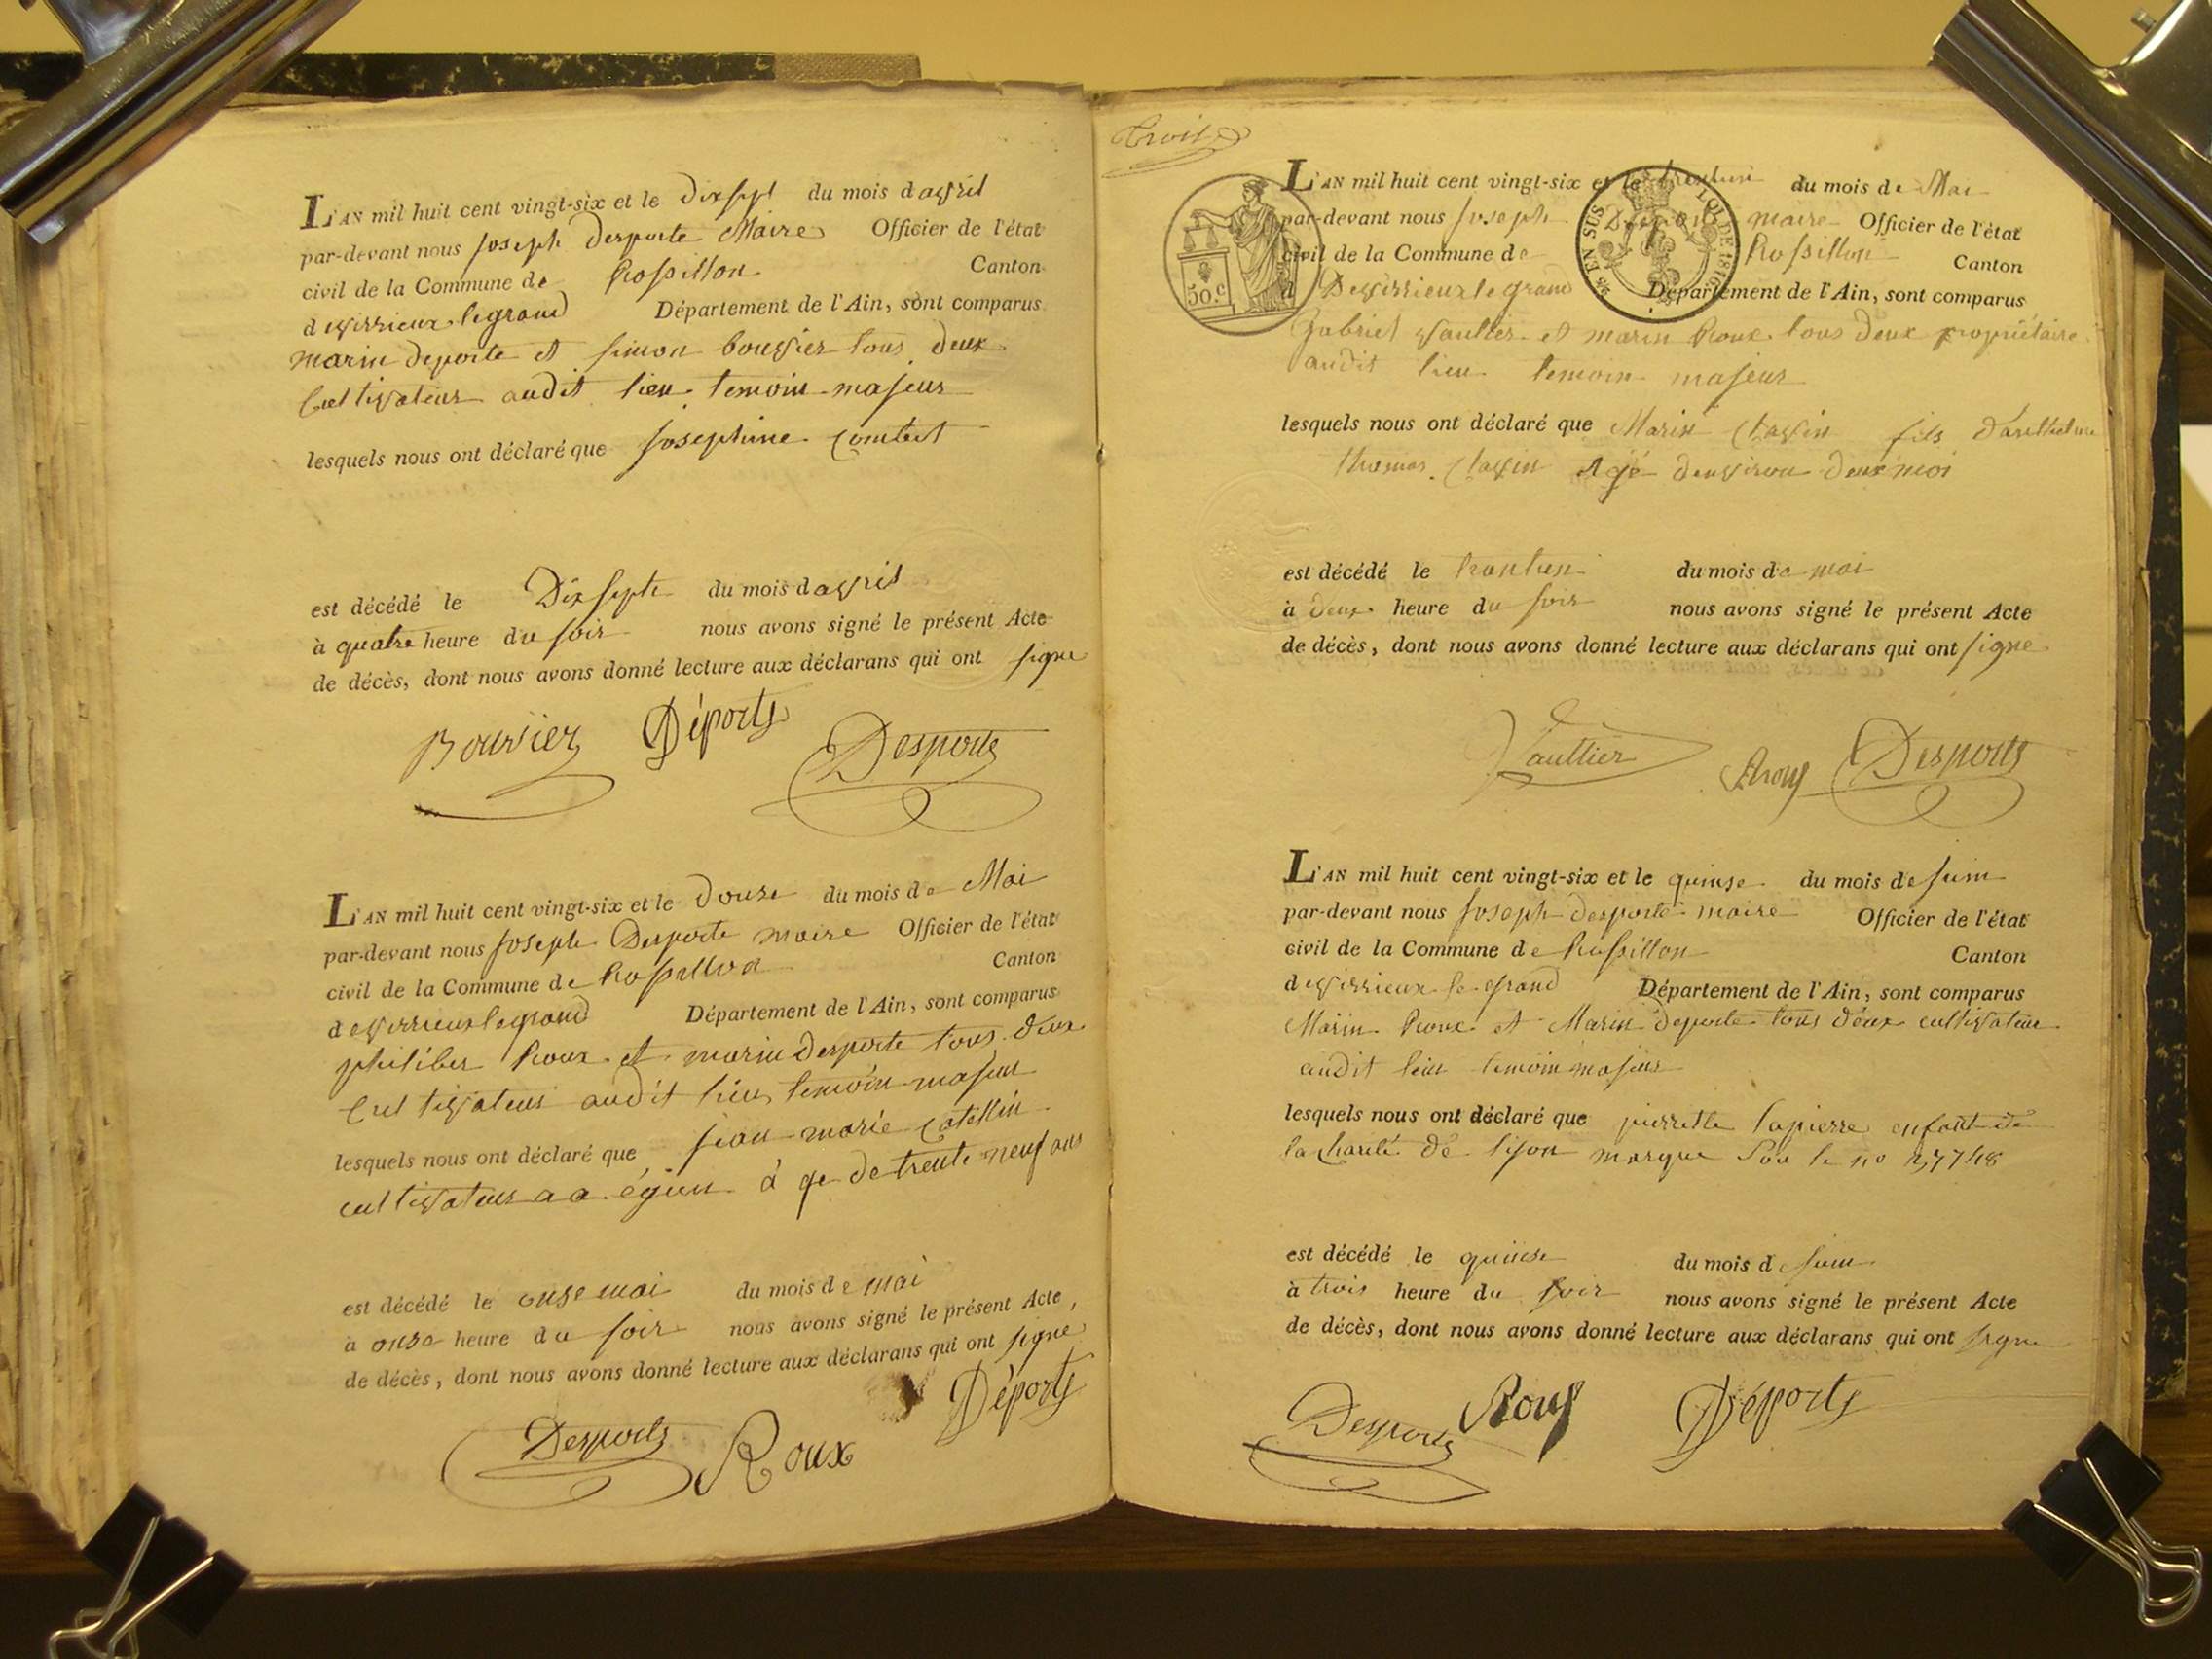 L'AN mil huit cent vingt-six et le dix sept du mois d avril
par-devant nous joseph desporte Maire Officier de l'état
civil de la Commune de Rossillon Canton
d evirieux legrand Département de l'Ain, sont comparus
marin deporte et simon bouvier tous deux
Cultivateur audit lieu temoin majeur
lesquels nous ont déclaré que josephine
est décédé le Dix septe du mois d avril
à quatre heure du soir nous avons signé le présent Acte
de décès, dont nous avons donné lecture aux déclarans qui ont signe
Bouvier Déporte Desporte
L'AN mil huit cent vingt-six et le douze du mois de Mai
par-devant nous joseph Desporte maire Officier de l'état
civil de la Commune de Rossillon Canton
d evirrieux legrand Département de l'Ain, sont comparus
philiber Roux et marin desporte tous deux
Cultivateur audit lieu temoin majeur
lesquels nous ont déclaré que jean marie Catellin
cultivateur a a égieu à ge de trente neuf ans
est décédé le onse mai du mois de mai
à onse heure du soir nous avons signé le présent Acte,
de décès, dont nous avons donné lecture aux déclarans qui ont signe
Desporte Roux Déporte
Troise
L'AN mil huit cent vingt-six et le trentun du mois de Mai
par-devant nous joseph Desporte maire Officier de l'état
civil de la Commune de Rossillon Canton
d Devirrieux le grand Département de l'Ain, sont comparus
50.c
EN SUS LOI DE 1816
Gabriel vaultier et marin Roux tous deux propriétaire
audit lieu temoin majeur
lesquels nous ont déclaré que Marin Clavin fils d'anthelme
thomas Clavin Agé denviron deux moi
est décédé le trantun du mois de mai
à deux heure du soir nous avons signé le présent Acte
de décès, dont nous avons donné lecture aux déclarans qui ont signe
Vaultier Roux Desporte
L'AN mil huit cent vingt-six et le quinse du mois de juin
par-devant nous joseph desporte maire Officier de l'état
civil de la Commune de Rossillon Canton
d evirrieux le grand Département de l'Ain, sont comparus
Marin Roux et Marin deporte tous deux cultivateur
audit lieu temoin majeur
lesquels nous ont déclaré que pierrette lapierre enfant de
la charité de lyon marque sou le no
est décédé le quinse du mois d juin
à trois heure du soir nous avons signé le présent Acte
de décès, dont nous avons donné lecture aux déclarans qui ont signe
Desporte Roux Déporte